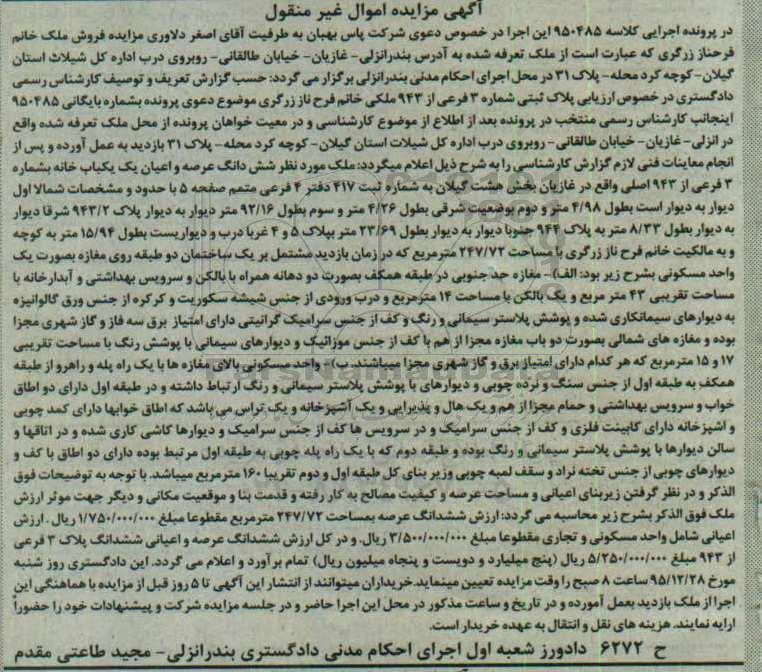 آگهی مزایده اموال غیر منقول
در پرونده اجرایی کلاسه ۹۵۰۴۸۵ این اجرا در خصوص دعوی شرکت پاس بهبان به طرفیت آقای اصغر دلاوری مزایده فروش ملک خانم
فرحناز زرگری که عبارت است از ملک تعرفه شده به آدرس بندرانزلی- غازیان- خیابان طالقانی- روبروی درب اداره کل شیلات استان
گیلان- کوچه کرد محله- پلاک ۳۱ در محل اجرای احکام مدنی بندرانزلی برگزار می گردد: حسب گزارش تعریف و توصیف کارشناس رسمی
دادگستری در خصوص ارزیابی پلاک ثبتی شماره ۳ فرعی از ۹۴۳ ملکی خانم فرح ناز زرگری موضوع دعوی پرونده بشماره بایگانی ۹۵۰۴۸۵
اینجانب کارشناس رسمی منتخب در پرونده بعد از اطلاع از موضوع کارشناسی و در معیت خواهان پرونده از محل ملک تعرفه شده واقع
در انزلی- غازیان- خیابان طالقانی- روبروی درب اداره کل شیلات استان گیلان- کوچه کرد محله- پلاک ۳۱ بازدید به عمل آورده و پس از
انجام معاینات فنی لازم گزارش کارشناسی را به شرح ذیل اعلام میگردد: ملک مورد نظر شش دانگ عرصه و اعیان یک یکباب خانه بشماره
۳ فرعی از ۹۴۳ اصلی واقع در غازیان بخش هشت گیلان به شماره ثبت ۴۱۷ دفتر ۴ فرعی متمم صفحه ۵ با حدود و مشخصات شمالا اول
دیوار به دیوار است بطول ۴/۹۸ متر و دوم بوضعیت شرقی بطول ۴/۲۶ متر و سوم بطول ۹۲/۱۶ متر دیوار به دیوار پلاک ۹۴۳/۲ شرقا دیوار
به دیوار بطول ۸/۳۳ متر به پلاک ۹۴۴ جنوبا دیوار به دیوار بطول ۲۳/۶۹ متر بپلاک ۵ و ۴ غربا درب و دیواریست بطول ۱۵/۹۴ متر به کوچه
و به مالکیت خانم فرح ناز زرگری با مساحت ۲۴۷/۷۲ مترمربع که در زمان بازدید مشتمل بر یک ساختمان دو طبقه روی مغازه بصورت یک
واحد مسکونی بشرح زیر بود: الف)- مغازه حد جنوبی در طبقه همکف بصورت دو دهانه همراه با بالکن و سرویس بهداشتی و آبدارخانه با
مساحت تقریبی ۴۳ متر مربع و یک بالکن با مساحت ۱۴ مترمربع و درب ورودی از جنس شیشه سکوریت و کرکره از جنس ورق گالوانیزه
به دیوارهای سیمانکاری شده و پوشش پلاستر سیمانی و رنگ و کف از جنس سرامیک گرانیتی دارای امتیاز برق سه فاز و گاز شهری مجزا
بوده و مغازه های شمالی بصورت دو باب مغازه مجزا از هم با کف از جنس موزائیک و دیوارهای سیمانی با پوشش رنگ با مساحت تقریبی
۱۷ و ۱۵ مترمربع که هر کدام دارای امتیاز برق و گاز شهری مجزا میباشند. ب)- واحد مسکونی بالای مغازه ها با یک راه پله و راهرو از طبقه
همکف به طبقه اول از جنس سنگ و نرده چوبی و دیوارهای با پوشش پلاستر سیمانی و رنگ ارتباط داشته و در طبقه اول دارای دو اطاق
خواب و سرویس بهداشتی و حمام مجزا از هم و یک هال و پذیرایی و یک آشپزخانه و یک تراس می باشد که اطاق خوابها دارای کمد چوبی
و اشپزخانه دارای کابینت فلزی و کف از جنس سرامیک و در سرویس ها کف از جنس سرامیک و دیوارها کاشی کاری شده و در اتاقها و
سالن دیوارها با پوشش پلاستر سیمانی و رنگ بوده و طبقه دوم که با یک راه پله چوبی به طبقه اول مرتبط بوده دارای دو اطاق با کف و
دیوارهای چوبی از جنس تخته نراد و سقف لمبه چوبی وزیر بنای کل طبقه اول و دوم تقریبا ۱۶۰ مترمربع میباشد. با توجه به توضیحات فوق
الذکر و در نظر گرفتن زیربنای اعیانی و مساحت عرصه و کیفیت مصالح به کار رفته و قدمت بنا و موقعیت مکانی و دیگر جهت موثر ارزش
ملک فوق الذکر بشرح زیر محاسبه می گردد: ارزش ششدانگ عرصه بمساحت ۲۴۷/۷۲ مترمربع مقطوعا مبلغ ۱/۷۵۰/۰۰۰/۰۰۰ ریال. ارزش
اعیانی شامل واحد مسکونی و تجاری مقطوعا مبلغ ۳/۵۰۰/۰۰۰/۰۰۰ ریال. و در کل ارزش ششدانگ عرصه و اعیانی ششدانگ پلاک ۳ فرعی
از ۹۴۳ مبلغ ۵/۲۵۰/۰۰۰/۰۰۰ ریال (پنج میلیارد و دویست و پنجاه میلیون ریال) تمام برآورد و اعلام می گردد. این دادگستری روز شنبه
مورخ ۹۵/۱۲/۲۸ ساعت ۸ صبح را وقت مزایده تعیین مینماید.خریداران میتوانند از انتشار این آگهی تا ۵ روز قبل از مزایده با هماهنگی این
اجرا از ملک بازدید بعمل آمورده و در تاریخ و ساعت مذکور در محل این اجرا حاضر و در جلسه مزایده شرکت و پیشنهادات خود را حضوراً
ارایه نمایند. هزینه های نقل و انتقال به عهده خریدار است.
ح ۶۲۷۲ دادورز شعبه اول اجرای احکام مدنی دادگستری بندرانزلی- مجید طاعتی مقدم